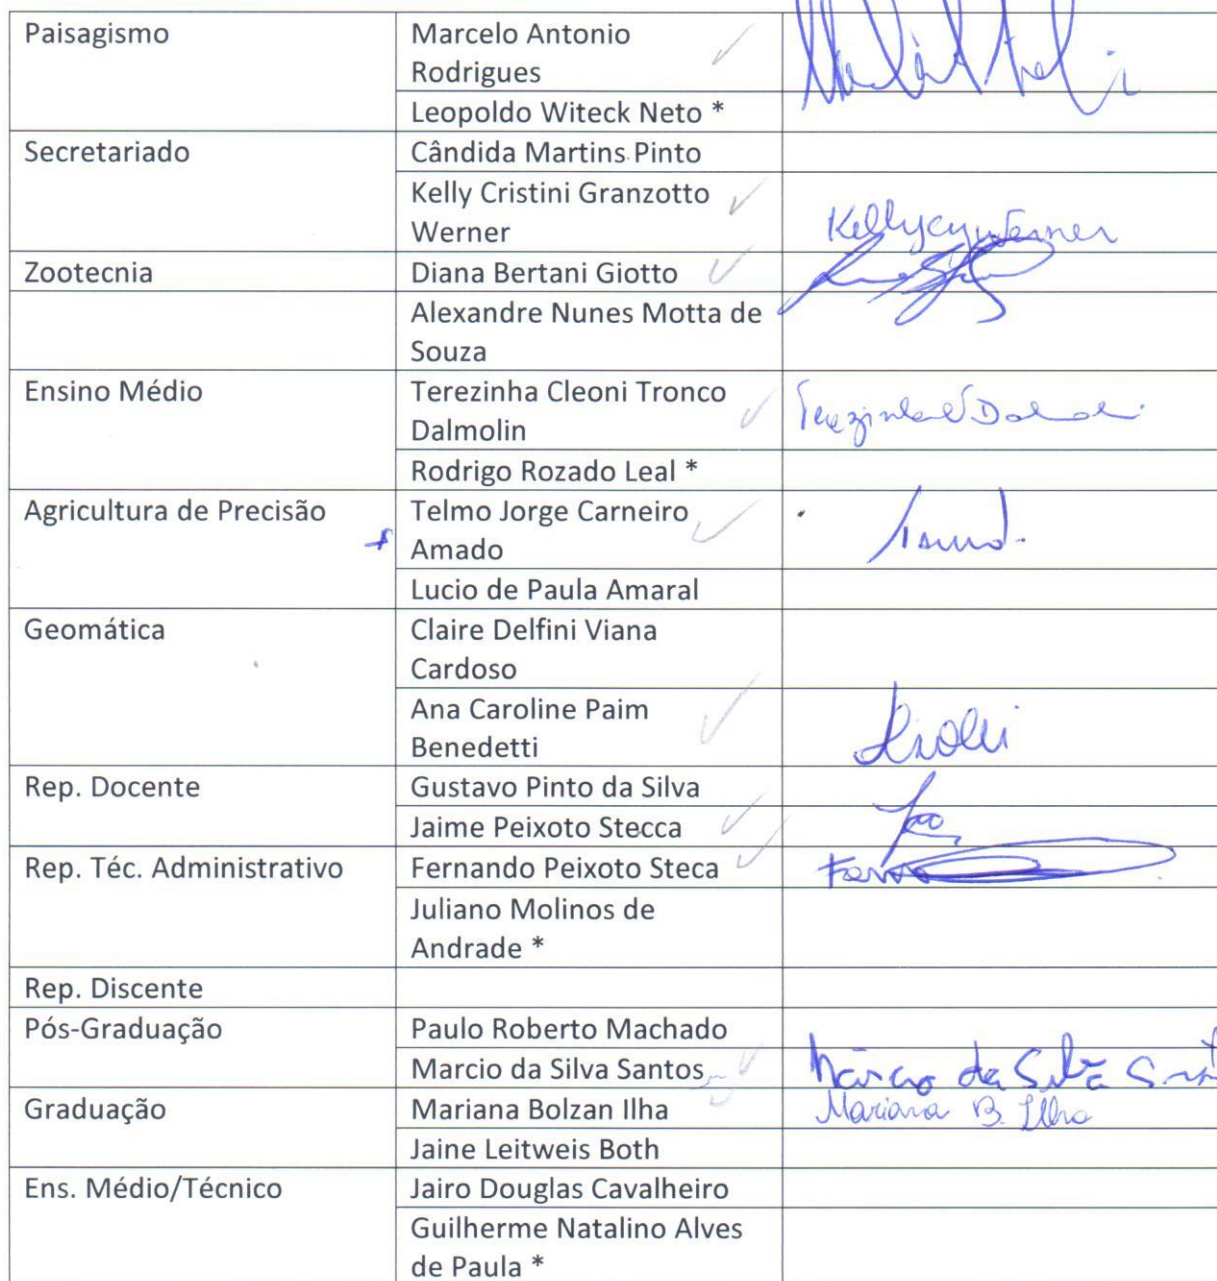 Paisagismo
Marcelo Antonio
Rodrigues
Leopoldo Witeck Neto *
Secretariado
Cândida Martins Pinto
Kelly Cristini Granzotto
Werner
Zootecnia
Diana Bertani Giotto
Alexandre Nunes Motta de
Souza
Ensino Médio
Terezinha Cleoni Tronco
Dalmolin
Rodrigo Rozado Leal *
Agricultura de Precisão
Telmo Jorge Carneiro
Amado
Lucio de Paula Amaral
Geomática
Claire Delfini Viana
Cardoso
Ana Caroline Paim
Benedetti
Rep. Docente
Gustavo Pinto da Silva
Jaime Peixoto Stecca
Rep. Téc. Administrativo
Fernando Peixoto Steca
Juliano Molinos de
Andrade *
Rep. Discente
Pós-Graduação
Paulo Roberto Machado
Marcio da Silva Santos
Márcio da Silva
Graduação
Mariana Bolzan Ilha
Mariana B. Ilha
Jaine Leitweis Both
Ens. Médio/Técnico
Jairo Douglas Cavalheiro
Guilherme Natalino Alves
de Paula *